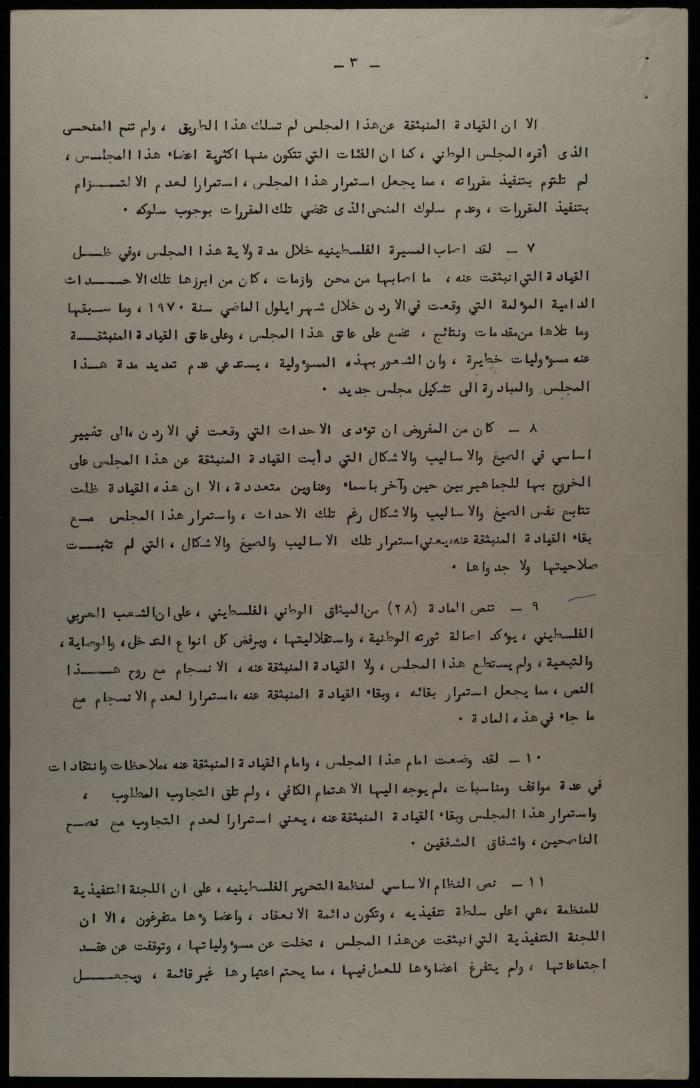 ـ ٣ ـ
الا ان القيادة المنبثقة عن هذا المجلس لم تسلك هذا الطريق ، ولم تنح المنحى
الذى أقره المجلس الوطني ، كما ان الفئات التي تتكون منها اكثرية اعضاء هذا المجلس ،
لم تلتوم بتنفيذ مقرراته ، مما يجعل استمرار هذا المجلس ، استمرارا لعدم الالتزام
بتنفيذ المقررات ، وعدم سلوك المنحى الذى تقضي تلك المقررات بوجوب سلوكه ٠
٧ ـ لقد اصاب المسيرة الفلسطينيه خلال مدة ولاية هذا المجلس ،وفي ظل
القيادة التي انبثقت عنه ، ما اصابها من محن وازمات ، كان من ابرزها تلك الاحداث
الدامية المؤلمة التي وقعت في الاردن خلال شهر ايلول الماضي سنة ١٩٧٠ ، وما سبقها
وما تلاها من مقدمات ونتائج ، تضع على عاتق هذا المجلس ، وعلى عاتق القيادة المنبثقة
عنه مسؤوليات خطيرة ، وان الشعور بهذه المسؤولية ، يستدعي عدم تمديد مدة هذا
المجلس والمبادرة الى تشكيل مجلس جديد ٠
٨ ـ كان من المفروض ان تؤدى الاحداث التي وقعت في الاردن ،الى تغيير
اساسي في الصيغ والاساليب والاشكال التي دأبت القيادة المنبثقة عن هذا المجلس على
الخروج بها للجماهير بين حين وآخر باسماء وعناوين متعددة ، الا ان هذه القيادة ظلت
تتابع نفس الصيغ والاساليب والاشكال رغم تلك الاحداث ، واستمرار هذا المجلس مع
بقاء القيادة المنبثقة عنه،يعني استمرار تلك الاساليب والصيغ والاشكال ، التي لم تثبت
صلاحيتها ولا جدواها ٠
٩ ـ تنص المادة (٢٨) من الميثاق الوطني الفلسطيني ، على ان الشعب العربي
الفلسطيني ، يؤكد اصالة ثورته الوطنية ، واستقلاليتها ، ويرفض كل انواع التدخل، والوصاية ،
والتبعية ، ولم يستطع هذا المجلس ، ولا القيادة المنبثقة عنه ، الانسجام مع روح هذا
النص ، مما يجعل استمرار بقائه ، وبقاء القيادة المنبثقة عنه ،استمرارا لعدم الانسجام مع
ما جاء في هذه المادة ٠
١٠ ـ لقد وضعت امام هذا المجلس ، وامام القيادة المنبثقة عنه ،ملاحظات وانتقادات
في عدة مواقف ومناسبات ،لم يوجه اليها الاهتمام الكافي ، ولم تلق التجاوب المطلوب ،
واستمرار هذا المجلس وبقاء القيادة المنبثقة عنه ، يعني استمرارا لعدم التجاوب مع نصح
الناصحين ، واشفاق المشفقين ٠
١١ ـ نص النظام الاساسي لمنظمة التحرير الفلسطينيه ، على ان اللجنة التنفيذية
للمنظمة ،هي اعلى سلطة تنفيذيه ، وتكون دائمة الانعقاد ، واعضاؤها متفرغون ، الا ان
اللجنة التنفيذية التي انبثقت عن هذا المجلس ، تخلت عن مسؤولياتها ، وتوقفت عن عقد
اجتماعاتها ، ولم يتفرغ اعضاؤها للعمل فيها ، مما يحتم اعتبارها غير قائمة ، ويجعل